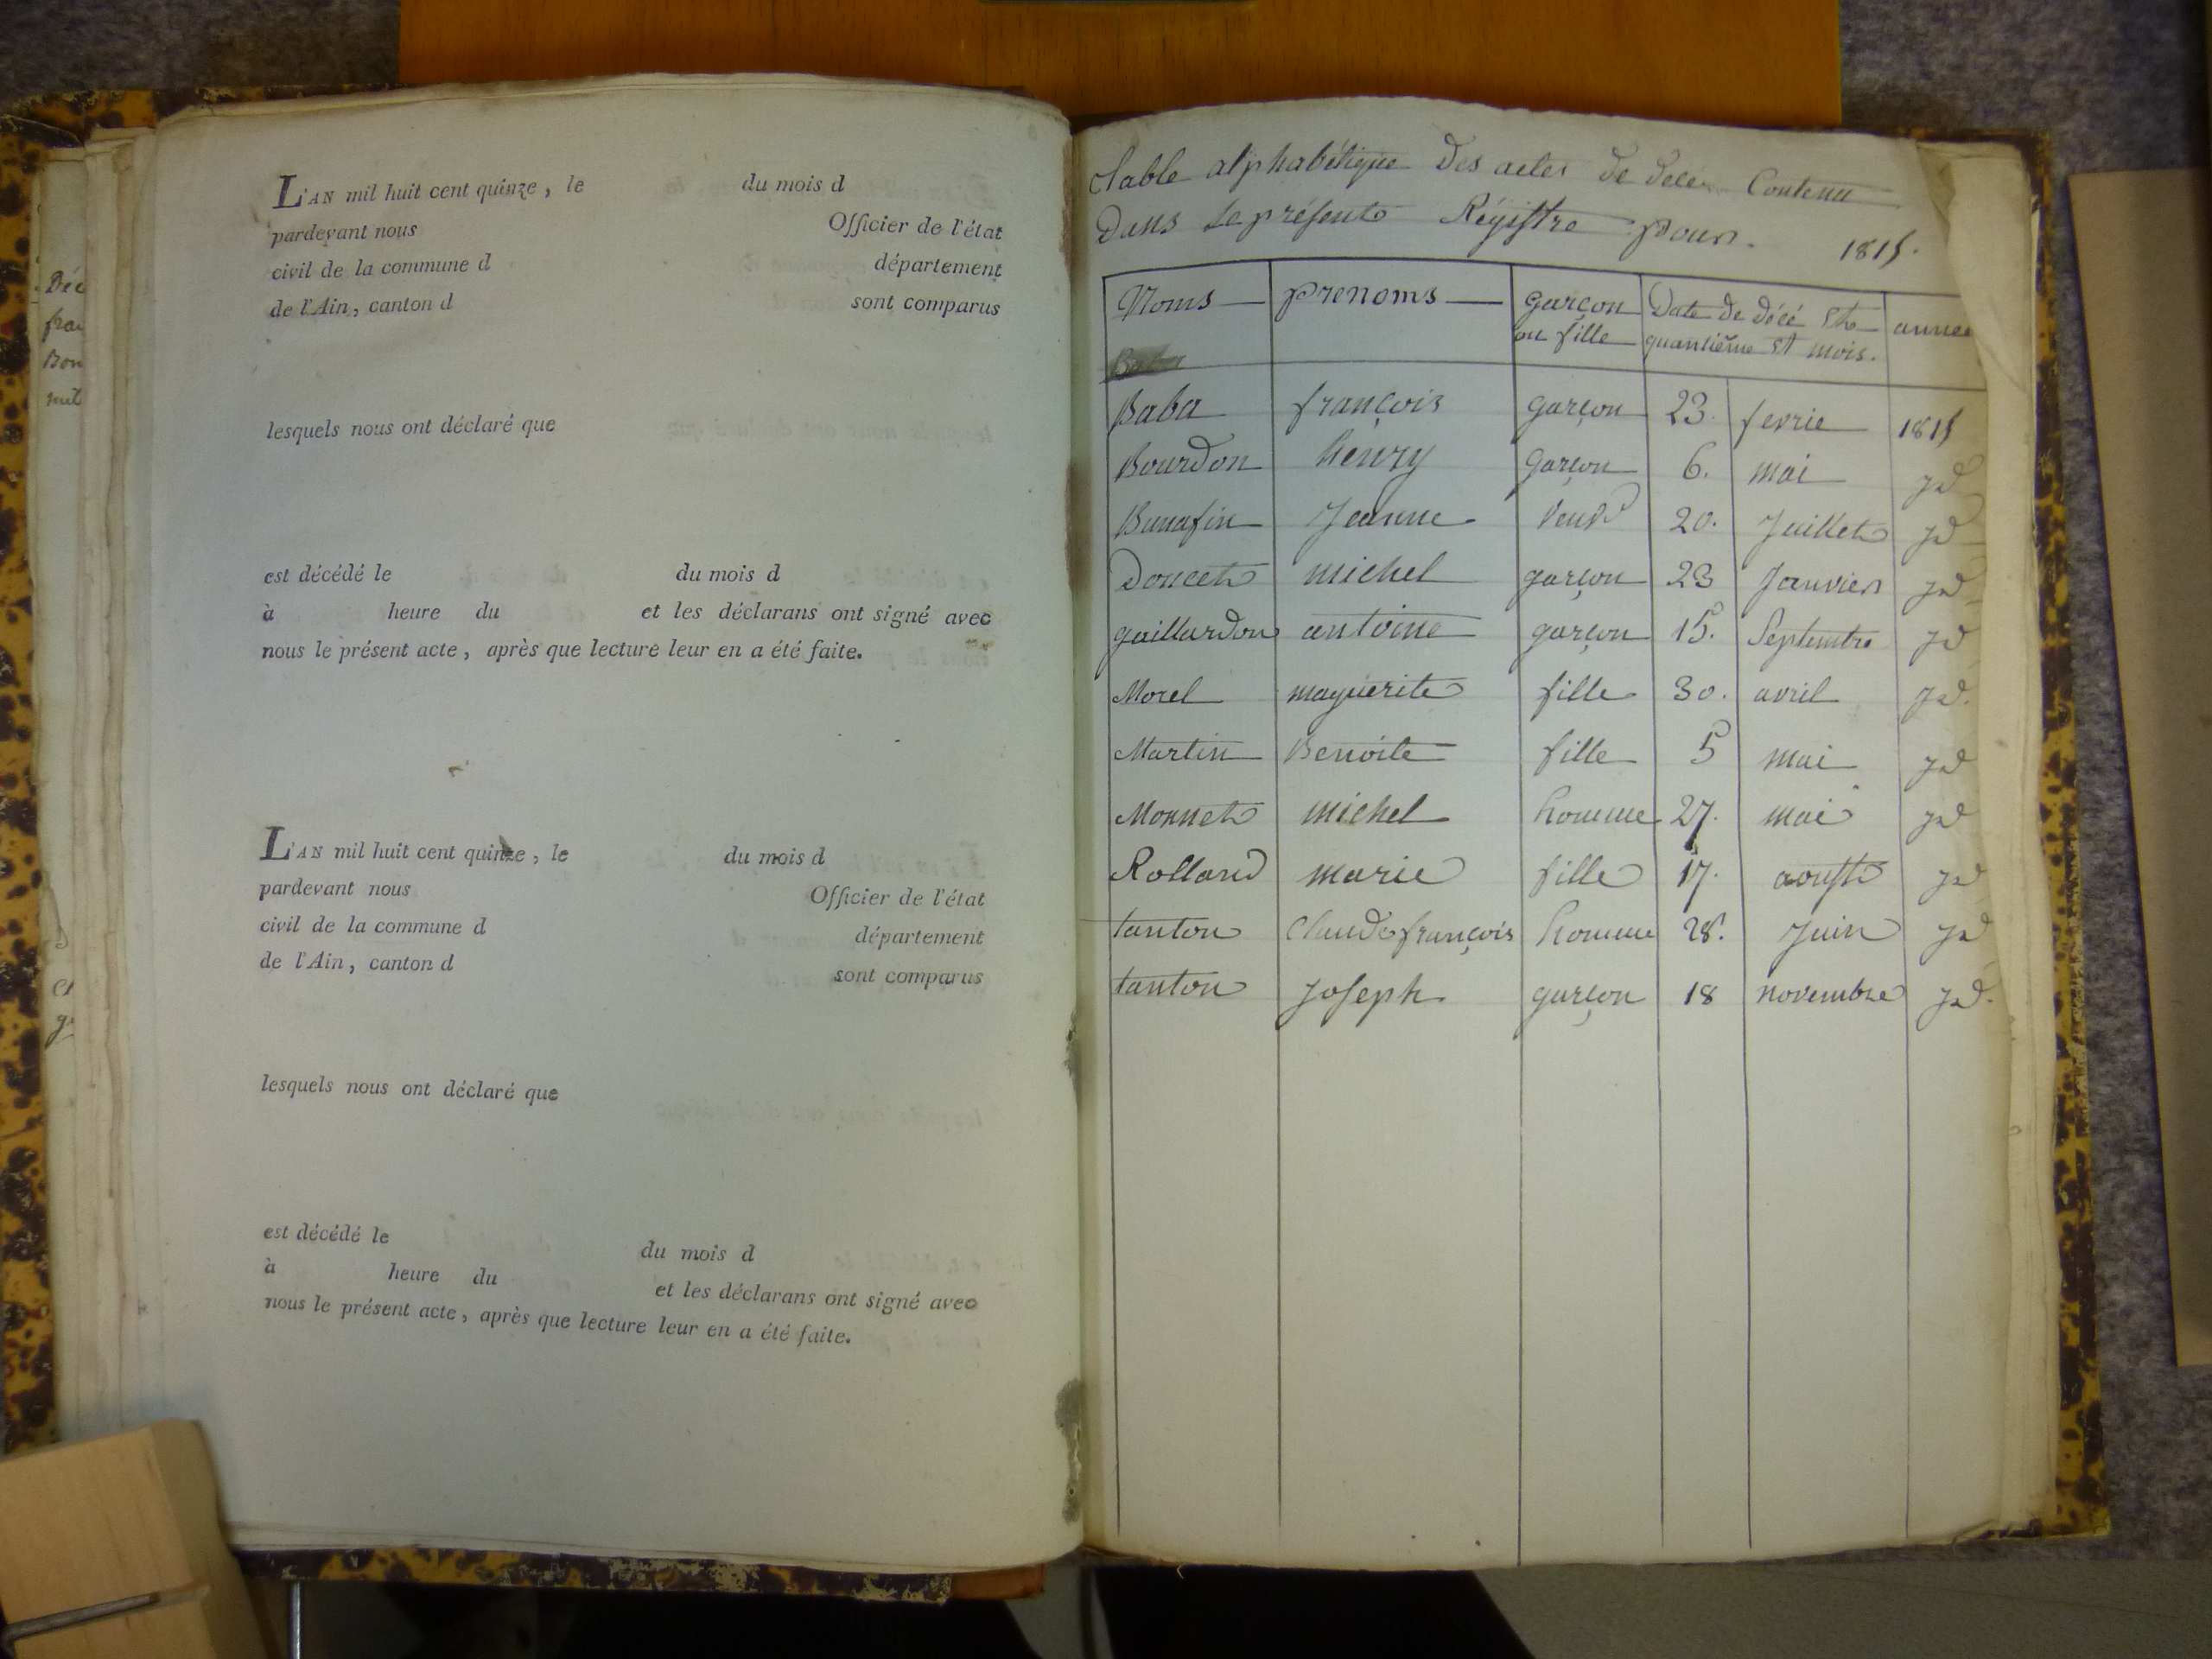 Déc
frai
Bon
mil
et
L'AN mil huit cent quinze, le du mois d
pardevant nous Officier de l'état
civil de la commune d département
de l'Ain, canton d sont comparus
lesquels nous ont déclaré que
est décédé le du mois d
à heure du et les déclarans ont signé avec
nous le présent acte, après que lecture leur en a été faite.
L'AN mil huit cent quinze, le du mois d
pardevant nous Officier de l'état
civil de la commune d département
de l'Ain, canton d sont comparus
lesquels nous ont déclaré que
est décédé le du mois d
à heure du et les déclarans ont signé avec
nous le présent acte, après que lecture leur en a été faite.
table alphabétique Des actes de décè Contenu
Dans le présente Régistre pour 1815.
Noms prenoms garçon ou fille Date de décé quantième et mois. année
Baba françois garçon 23. fevrie 1815
Bourdon henry garçon 6. mai yd
Bunafin Jeanne veuve 20. Juillet yd
Doucet michel garçon 23 Janvier yd
gaillardon antoine garçon 15. Septembre yd
Morel maguerite fille 30. avril yd.
Martin Benoite fille 5 mai yd
Monnet michel homme 27. mai yd
Rolland marie fille 17. aoust yd
tanton Claude françois homme 28. Juin yd
tanton Joseph garçon 18 novembre yd.